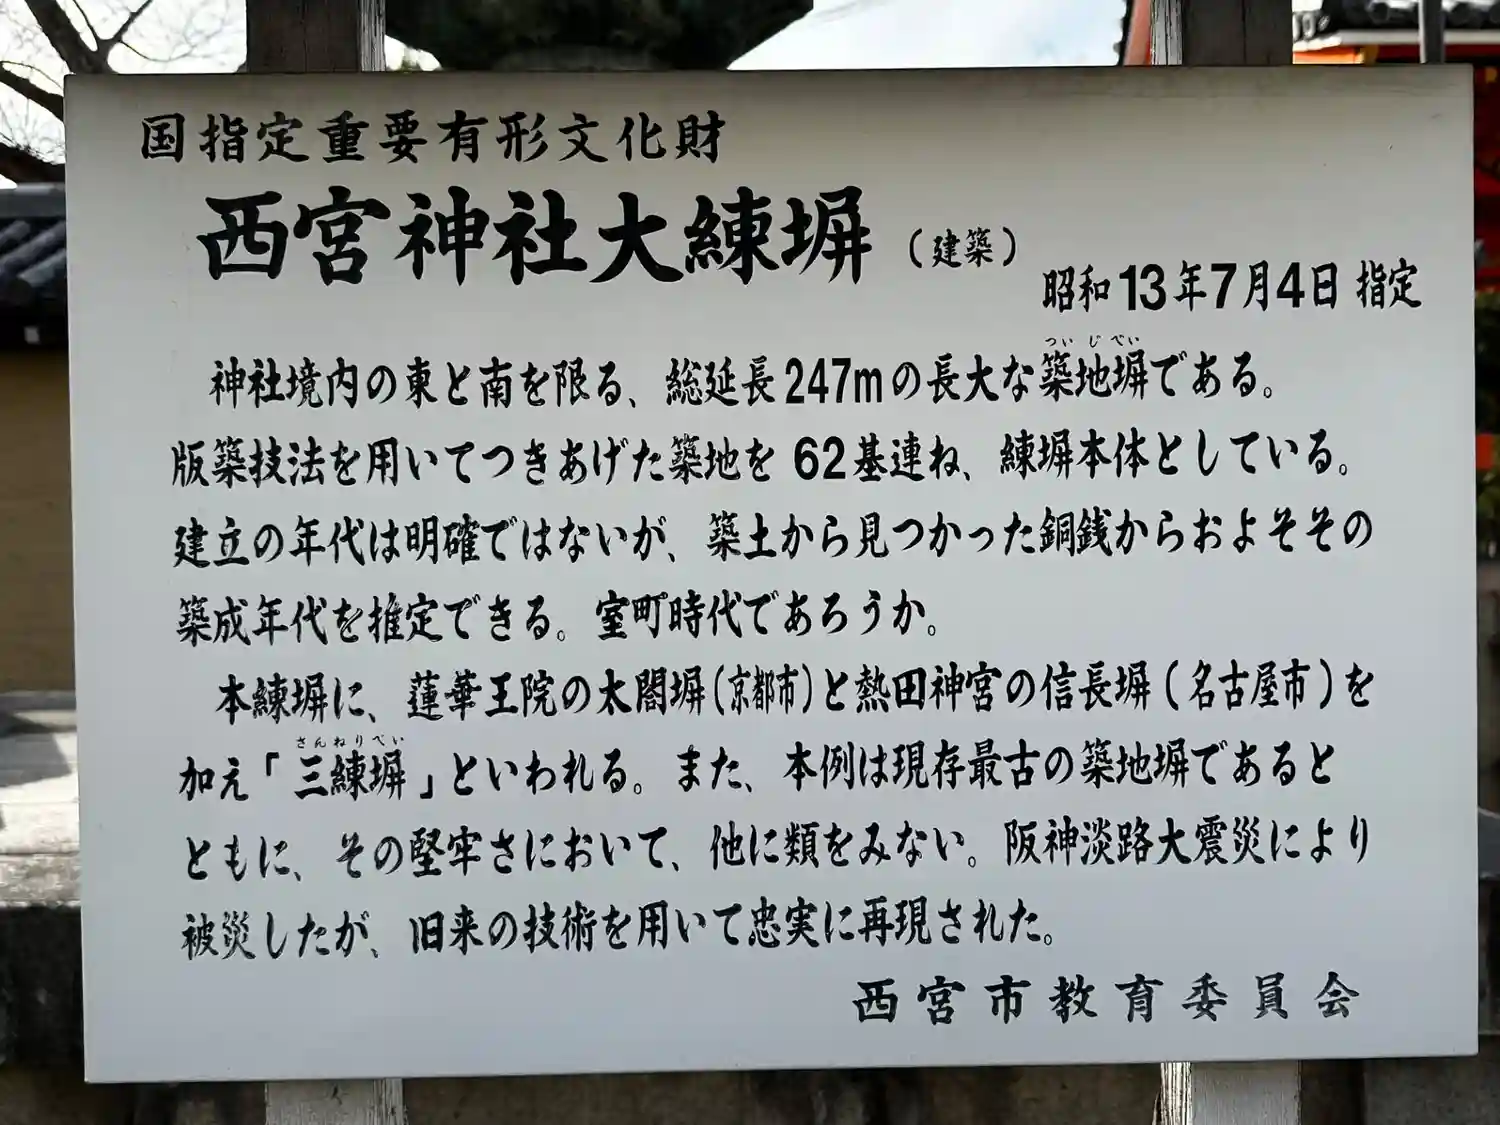 国指定重要有形文化財
西宮神社大練塀(建築)
昭和13年7月4日 指定
ついじべい
神社境内の東と南を限る、総延長247mの長大な築地塀である。
版築技法を用いてつきあげた築地を62基連ね、練塀本体としている。
建立の年代は明確ではないが、築土から見つかった銅銭からおよそその
築成年代を推定できる。室町時代であろうか。
本練塀に、蓮華王院の太閤塀(京都市)と熱田神宮の信長塀(名古屋市)を
さんねりべい
加え「三練塀」といわれる。また、本例は現存最古の築地塀であると
ともに、その堅牢さにおいて、他に類をみない。阪神淡路大震災により
被災したが、旧来の技術を用いて忠実に再現された。
西宮市教育委員会